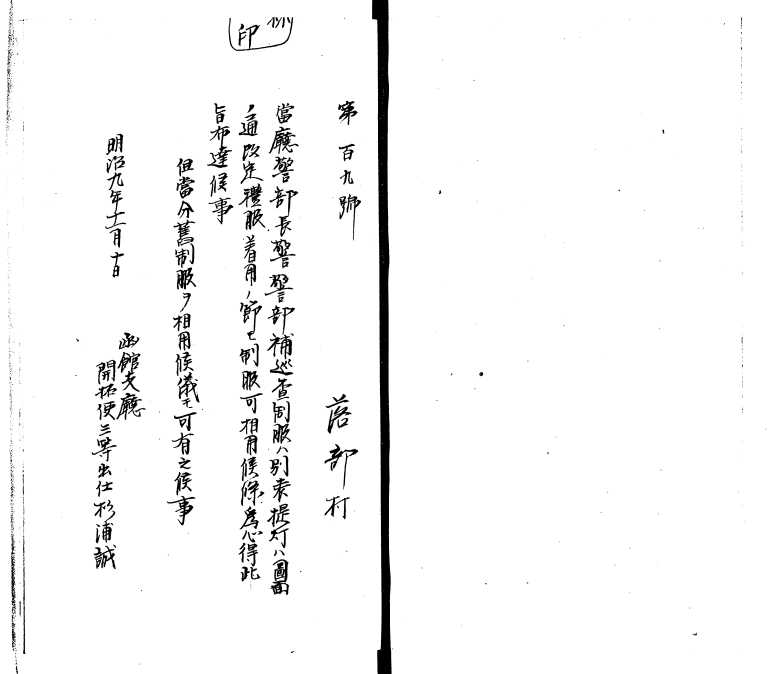 印
第百九號
落部村
當廳警部長警部警部補巡査制服ハ別表提灯ハ圖面
ノ通改定禮服着用ノ節モ制服可相用候條爲心得此
旨布達候事
但當分舊制服ヲ相用候儀モ可有之候事
明治九年十一月十日
函館支廳
開拓使三等出仕杉浦誠